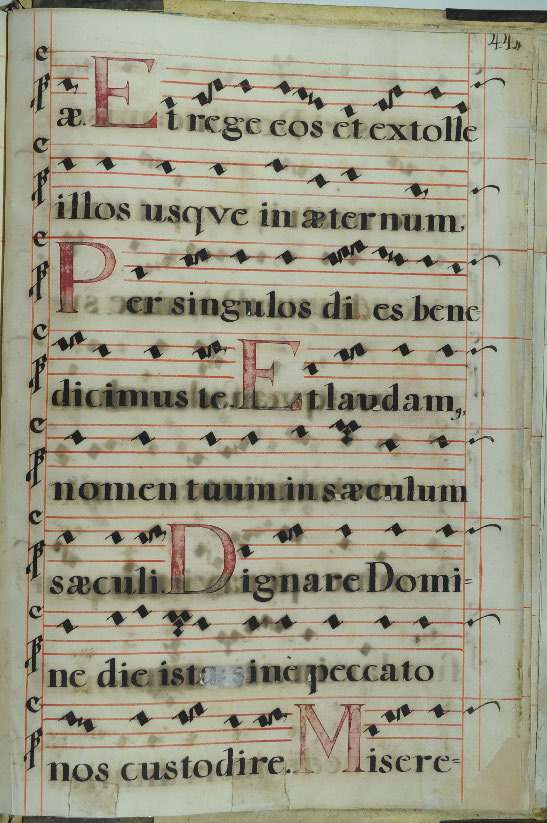 44
æ. Et rege eos et extolle
illos usqve in æternum,
Per singulos di es bene
dicimus te. Et laudam9,
nomen tuum in sæculum
sæculi. Dignare Domi=
ne die ista sine peccato
nos custodire. Misere=